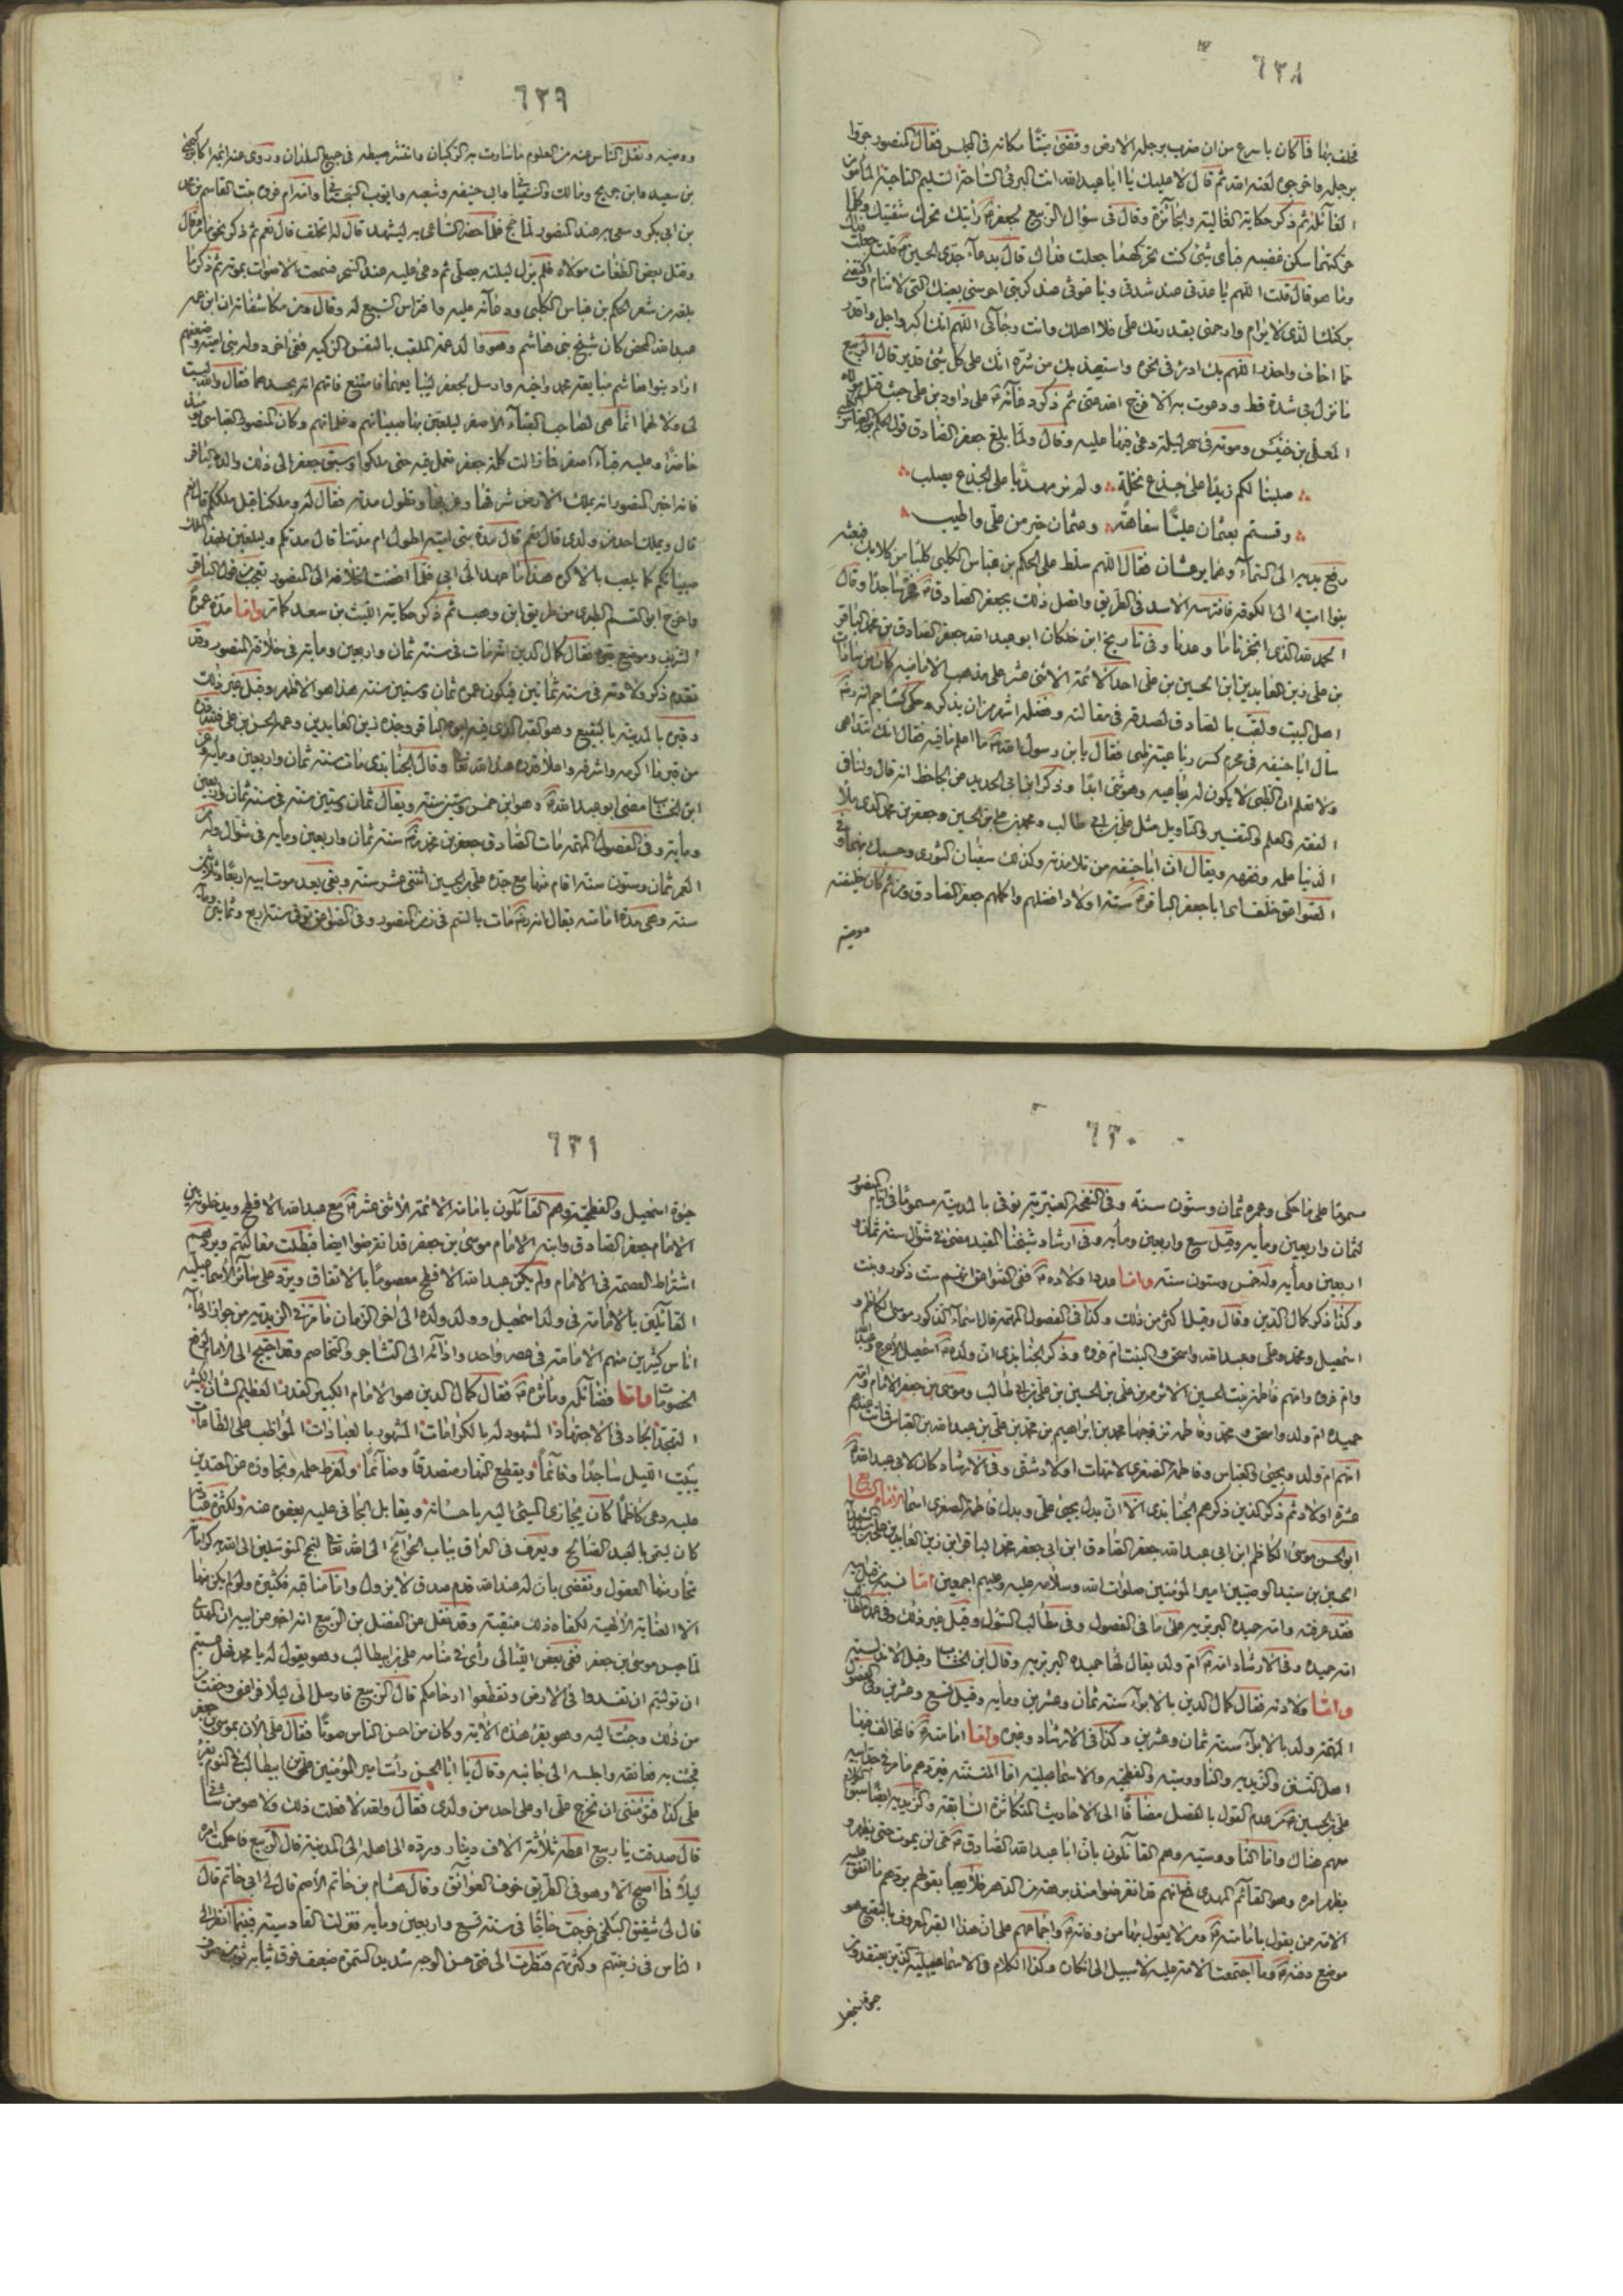 ٦٢٨
فحلف بها فما كان باسرع من ان ضرب برجله الارض وقضى ميتا مكانه فى المجلس فقال المنصور جروا
برجله واخرجوه لعنه الله ثم قال لا عليك يا ابا عبد الله انت البرئ الساحة السليم الناحية المأمون
الغائلة ثم ذكر حكاية الغالية والجائزة وقال فى سؤال الربيع لجعفر رأيتك تحرك شفتيك وكلما
حركتهما سكن غضبه فباى شئ كنت تحركهما جعلت فداك قال بدعاء جدى الحسين قلت جعلت فداك
وما هو قال قلت اللهم يا عدتى عند شدتى ويا غوثى عند كربتى احرسنى بعينك التى لا تنام واكنفنى
بركنك الذى لا يرام وارحمنى بقدرتك على فلا اهلك وانت رجائى اللهم انك اكبر واجل واقدر
مما اخاف واحذر اللهم بك ادرء فى نحره واستعيذ بك من شره انك على كل شئ قدير قال الربيع
ما نزل بى شدة قط ودعوت به الا فرج الله عنى ثم ذكر دعائه على داود بن على حيث قتل مولاه
المعلى بن خنيس وموته فى سحر ليلة دعى فيها عليه وقال ولما بلغ جعفر الصادق قول الحكم بن العباس الكلبى
صلبنا لكم زيدا على جذع نخلة ولم نر مهديا على الجذع يصلب
وقستم بعثمان عليا سفاهة وعثمان خير من على واطيب
رفع يديه الى السماء وهما يرعشان فقال اللهم سلط على الحكم بن عباس الكلبى كلبا من كلابك فبعثه
بنو امية الى الكوفة فافترسه الاسد فى الطريق واتصل ذلك بجعفر الصادق فخر ساجدا وقال
الحمد لله الذى انجزنا ما وعدنا وفى تاريخ ابن خلكان ابو عبد الله جعفر الصادق بن محمد الباقر
بن على زين العابدين ابن الحسين بن على احد الائمة الاثنى عشر على مذهب الامامية كان من سادات
اهل البيت ولقب بالصادق لصدقه فى مقالته وفضله اشهر من ان يذكر وحكى كشاجم انه
سأل ابا حنيفة فى محرم كسر رباعية ظبى فقال يا بن رسول الله ما اعلم ما فيه فقال انك تتداهى
ولا تعلم ان الظبى لا يكون له رباعية وهو ثنى ابدا وذكر ابن ابى الحديد عن الجاحظ انه قال
الفقه والعلم والتفسير والتأويل مثل على بن ابى طالب ومحمد بن على بن الحسين وجعفر بن محمد الذى ملأ
الدنيا علمه وفقهه ويقال ان ابا حنيفة من تلامذته وكذلك سفيان الثورى وحسبك بهما وفى
الصواعق خلف اى ابا جعفر الباقر ستة اولاد افضلهم واكملهم جعفر الصادق ومن ثم كان خليفته
ووصيه
٦٢٩
ووصيه ونقل الناس عنه من العلوم ما سارت به الركبان وانتشر صيته فى جميع البلدان وروى عنه ائمة اكابر كيحيى
بن سعيد وابن جريج ومالك والسفيانين وابى حنيفة وشعبة وايوب السختيانى وامه ام فروه بنت القاسم بن محمد
بن ابى بكر وسعى به عند المنصور لما حج فلما حضر الساعى به ليشهد قال له اتحلف قال نعم ثم ذكر نحو ما مر قال
وقتل بعض الطغاة مولاه فلم يزل ليلته يصلى ثم دعى عليه عند السحر فسمعت الاصوات بموته ثم ذكر ما
بلغه من شعر الحكم بن عباس الكلبى ودعائه عليه وافتراس السبع له وقال ومن مكاشفاته ان ابن عمه
عبد الله المحض كان شيخ بنى هاشم وهو والد محمد الملقب بالنفس الزكية ففى اخر دولة بنى امية وضعفهم
اراد بنو هاشم مبايعة محمد واخيه وارسل لجعفر ليبايعهما فامتنع فاتهم انه يحسدهما فقال والله ليست
لى ولا لهما انها لصاحب القباء الاصفر ليلعبن بها صبيانهم وغلمانهم وكان المنصور العباسى يومئذ
حاضرا وعليه قباء اصفر فما زالت كلمة جعفر تعمل فيه حتى ملكوا وسبق جعفر الى ذلك والده الباقر
فانه اخبر المنصور انه يملك الارض شرقها وغربها وتطول مدته فقال له وملكنا قبل ملككم قال نعم
قال ويملك احد من ولدى قال نعم قال مدة بنى امية اطول ام مدتنا قال مدتكم وليلعبن بهذا الملك
صبيانكم كما يلعب بالاكره هذا ما عهد الى ابى فلما افضت الخلافة الى المنصور تعجب من قول الباقر
واخرج ابو القسم الطبرى من طريق ابن وهب ثم ذكر حكاية الليث بن سعد كما مر واما مدة عمره
الشريف وموضع قبره فقال كمال الدين انه مات فى سنة ثمان واربعين ومأية فى خلافة المنصور وقد
تقدم ذكر ولادته فى سنة ثمانين فيكون عمره ثمان وستين سنة هذا هو الاظهر وقيل غير ذلك
وقبره بالمدينة بالبقيع وهو القبر الذى فيه ابوه الباقر وجده زين العابدين وعمه الحسن بن على فلله دره
من قبر ما اكرمه واشرفه واعلا قدره عند الله تعالى وقال الجنابذى مات سنة ثمان واربعين ومأية وعن
ابن الخشاب مضى ابو عبد الله وهو ابن خمس وستين سنة ويقال ثمان وستين سنة فى سنة ثمان واربعين
ومأية وفى الفصول المهمة مات الصادق جعفر بن محمد سنة ثمان واربعين ومأية فى شوال وله من
العمر ثمان وستون سنة اقام فيها مع جده على بن الحسين اثنتى عشر سنة وبقى بعد موت ابيه اربعا وثلاثين
سنة وهى مدة امامته يقال انه مات بالسم فى زمن المنصور وفى الصواعق توفى سنة اربع وثمانين ومأية
٦٣٠
مسموما على ما حكى وعمره ثمان وستون سنة وفى النفحة العنبرية توفى بالمدينة مسموما فى ايام المنصور
لثمان واربعين ومأية وقيل سبع واربعين ومأية وفى ارشاد شيخنا المفيد مضى فى شوال سنة ثمان و
اربعين ومأية وله خمس وستون سنة واما عدد اولاده ففى الصواعق انهم ست ذكور وبنت
وكذا ذكر كمال الدين وقال وقيل اكثر من ذلك وكذا فى الفصول المهمة قال اسماء الذكور موسى الكاظم و
اسمعيل ومحمد وعلى وعبد الله واسحق والبنت ام فروه وذكر الجنابذى ان ولده اسمعيل الاعرج وعبد الله
وام فروه وامهم فاطمة بنت الحسين الاثرم بن على بن الحسين بن على بن ابى طالب وموسى بن جعفر الامام وامه
حميده ام ولد واسحق ومحمد وفاطمة تزوجها محمد بن ابراهيم بن محمد بن على بن عبد الله بن العباس فماتت عنده
امهم ام ولد ويحيى والعباس وفاطمة الصغرى لامهات اولاد شتى وفى الارشاد كان لابى عبد الله
عشرة اولاد ثم ذكر الذين ذكرهم الجنابذى الا ان بدل يحيى على وبدل فاطمة الصغرى اسما
ابو الحسن موسى الكاظم ابن ابى عبد الله جعفر الصادق ابن ابى جعفر محمد الباقر ابن زين العابدين على
الحسين بن سيد الوصيين امير المؤمنين صلوات الله وسلامه عليه وعليهم اجمعين اما نسبه من ابيه
فقد عرفته وامه حميدة البربرية على ما فى الفصول وفى مطالب السئول وقيل غير ذلك
امه حميده وفى الارشاد امه ام ولد يقال لها حميده البربرية وقال ابن الخشاب وقيل الاندلسية
واما ولادته فقال كمال الدين بالابواء سنة ثمان وعشرين ومأية وقيل تسع وعشرين وفى الفصول
المهمة ولد بالابواء سنة ثمان وعشرين وكذا فى الارشاد وغيره واما امامته فالمخالف فيها
اهل التسنن والزيدية والناووسية والفطحية والاسماعيلية اما المتسننة فيردهم ما مر فى جد ابيه
على بن الحسين من عدم القول بالفصل مضافا الى الاحاديث المتكاثرة السابقة والزيدية ايضا سبق الكلام
معهم هناك واما الناووسية وهم القائلون بان ابا عبد الله الصادق حى لن يموت حتى يظهر و
يظهر امره وهو القائم المهدى فمع انهم قد انقرضوا منذ برهة من الدهر فلا يعبأ بقولهم يردهم ما اتفق عليه
الامة من يقول بامامته ومن لا يقول بها من وفاته واجماعهم على ان هذا القبر المعروف بالبقيع هو
موضع دفنه وما اجتمعت الامة عليه لا سبيل الى انكاره وكذا الكلام فى الاسماعيلية الذين يعتقدون
حيوة اسمعيل
٦٣١
حيوة اسمعيل والفطحية وهم القائلون بامامة الائمة الاثنى عشر مع عبد الله الافطح ويدخلونه بين
الامام جعفر الصادق وابنه الامام موسى بن جعفر قد انقرضوا ايضا فبطلت مقالتهم ويردهم
اشتراط العصمة فى الامام ولم يكن عبد الله الافطح معصوما بالاتفاق ويرد على سائر الاسماعيلية
القائلين بالامامة فى ولد اسمعيل وولد ولده الى اخر الزمان ما مر فى الزيدية من جواز ادعاء
اناس كثيرين منهم الامامة فى عصر واحد وادائه الى التشاجر والتخاصم وقد احتيج الى الامام لرفع
الخصومات واما فضائله ومأثره فقال كمال الدين هو الامام الكبير القدر العظيم الشان الكثير
التهجد الجاد فى الاجتهاد المشهود له بالكرامات المشهور بالعبادات المواظب على الطاعات
يبيت الليل ساجدا وقائما ويقطع النهار متصدقا وصائما ولفرط حلمه وتجاوزه عن المعتدين
عليه دعى كاظما كان يجازى المسئ اليه باحسانه ويقابل الجانى عليه بعفوه عنه ولكثرة عباداته
كان يسمى بالعبد الصالح ويعرف فى العراق بباب الحوائج الى الله تعالى لنجح المتوسلين الى الله به كراماته
تحار منها العقول وتقضى بان له عند الله قدم صدق لا يزول واما مناقبه فكثيرة ولو لم يكن منها
الا العناية الالهية لكفاه ذلك منقبة وقد نقل عن الفضل بن الربيع انه اخبر عن ابيه ان المهدى
لما حبس موسى بن جعفر ففى بعض الليالى رأى فى منامه على بن ابيطالب وهو يقول له يا محمد فهل عسيتم
ان توليتم ان تفسدوا فى الارض وتقطعوا ارحامكم قال الربيع فارسل الى ليلا فراعنى وخفت
من ذلك وجئت اليه وهو يقرء هذه الاية وكان من احسن الناس صوتا فقال على الان بموسى بن جعفر
فجئت به فعانقه واجلسه الى جانبه وقال يا ابا الحسن رأيت امير المؤمنين على بن ابيطالب فى النوم يقرء
على كذا فتؤمننى ان تخرج على او على احد من ولدى فقال والله لا فعلت ذلك ولا هو من شأنى
قال صدقت يا ربيع اعطه ثلاثة الاف دينار ورده الى اهله الى المدينة قال الربيع فاحكمت امره
ليلا فما اصبح الا وهو فى الطريق خوف العوائق وقال هشام بن حاتم الاصم قال لى ابى حاتم قال
قال لى شقيق البلخى خرجت حاجا فى سنة تسع واربعين ومأية فنزلت القادسية فبينما انظر الى
الناس فى زينتهم وكثرتهم فنظرت الى فتى حسن الوجه شديد السمرة ضعيف فوق ثيابه ثوب من صوف